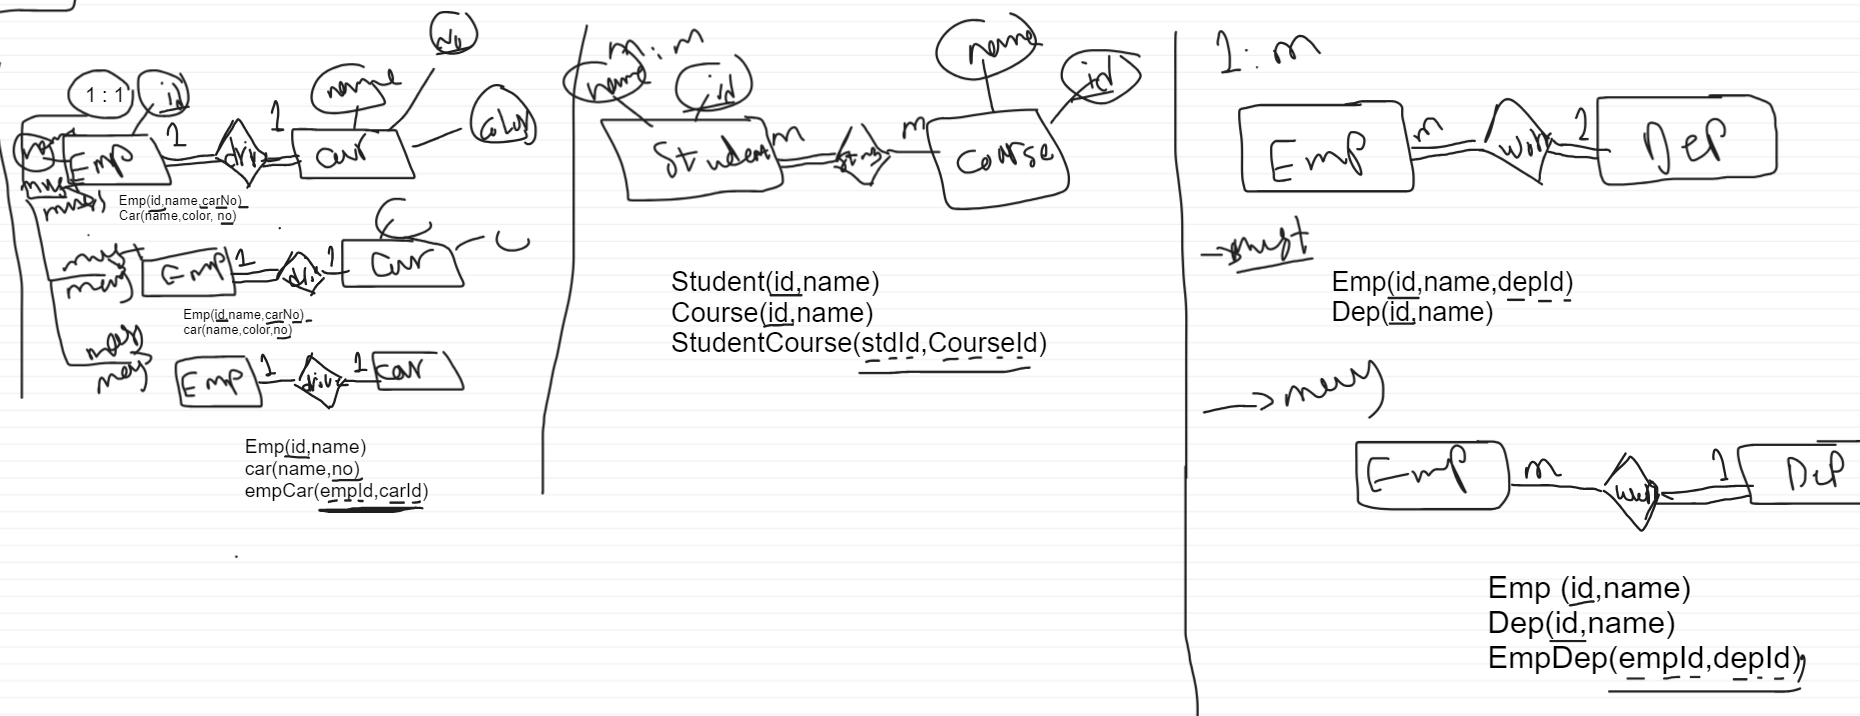 1 : 1
id
name
No
color
Emp
1
driv
1
Car
must
must
Emp(id,name,carNo)
Car(name,color, no)
must
may
Emp
1
dri
1
Car
Emp(id,name,carNo)
car(name,color,no)
may
may
Emp
1
driv
1
Car
Emp(id,name)
car(name,no)
empCar(empId,carId)
m : m
name
id
name
id
Student
m
m
Course
Student(id,name)
Course(id,name)
StudentCourse(stdId,CourseId)
1 : m
Emp
m
work
1
Dep
must
Emp(id,name,depId)
Dep(id,name)
may
Emp
m
work
1
Dep
Emp (id,name)
Dep(id,name)
EmpDep(empId,depId)